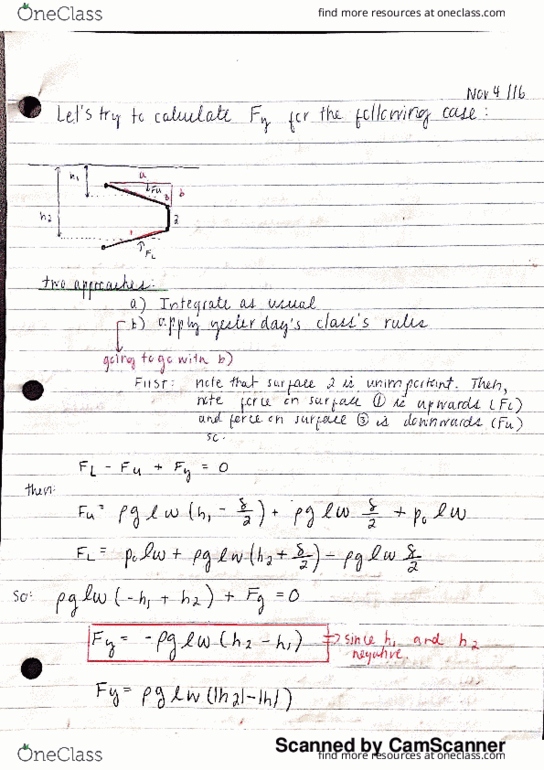 OneClass
find more resources at oneclass.com
Nov 4/16
Let's try to calculate Fy for the following case:
h1
a
Fu
3
b
h2
2
1
FL
two approaches:
a) Integrate as usual
b) apply yesterday's class's rules
going to go with b)
FIRST: note that surface 2 is unimportant. Then,
note force on surface ① is upwards (FL)
and force on surface ③ is downwards (Fu)
so:
FL - Fu + Fy = 0
then:
Fu = ρglw(h1 - δ/2) + ρglw δ/2 + p0lw
FL = p0lw + ρglw(h2 + δ/2) - ρglw δ/2
So: ρglw(-h1 + h2) + Fy = 0
Fy = -ρglw(h2 - h1) ⇒ since h1 and h2
negative
Fy = ρglw(|h2|-|h1|)
Scanned by CamScanner
OneClass
find more resources at oneclass.com